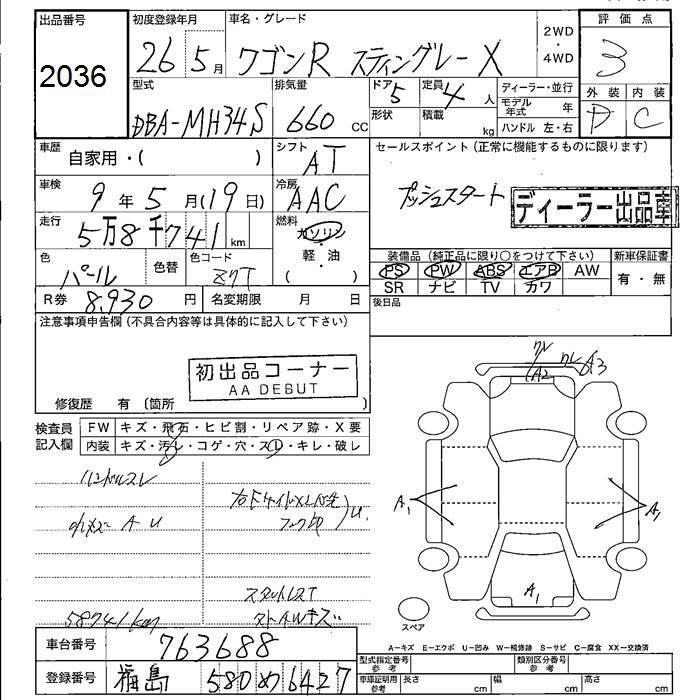 出品番号
2036
初度登録年月
26 5月
車名・グレード
ワゴンR スティングレー X
2WD
・
4WD
評価点
3
型式
DBA-MH34S
排気量
660 CC
ドア 5
形状
定員 4 人
積載 kg
ディーラー・並行
モデル年式 年
ハンドル 左・右
外装 内装
D C
車歴 自家用・( )
シフト AT
セールスポイント (正常に機能するものに限ります)
プッシュスタート
ディーラー出品車
車検 9年 5月(19日)
冷房 AAC
走行 5万8千741km
燃料
ガソリン
・
軽・油
( )
色 パール
色替
色コード Z7T
装備品 (純正品に限り○をつけて下さい)
PS PW ABS エアB AW
SR ナビ TV カワ
新車保証書
有・無
R券 8,930円
名変期限 月 日
後日品
注意事項申告欄 (不具合内容等は具体的に記入して下さい)
初出品コーナー
AA DEBUT
修復歴 有 (箇所 )
検査員記入欄
FW キズ・飛石・ヒビ割・リペア跡・X要
内装 キズ・汚レ・コゲ・穴・スレ・キレ・破レ
ハンドルスレ
A U
U
58741km
ワレ
A2
ワレ A3
A1
A1
A1
スペア
A-キズ E-エクボ U-凹み W-補修跡 S-サビ C-腐食 XX-交換済
車台番号 763688
登録番号 福島 580 め 6427
型式指定番号
参考
類別区分番号
参考
車庫証明用
参考
長さ cm
幅 cm
高さ cm